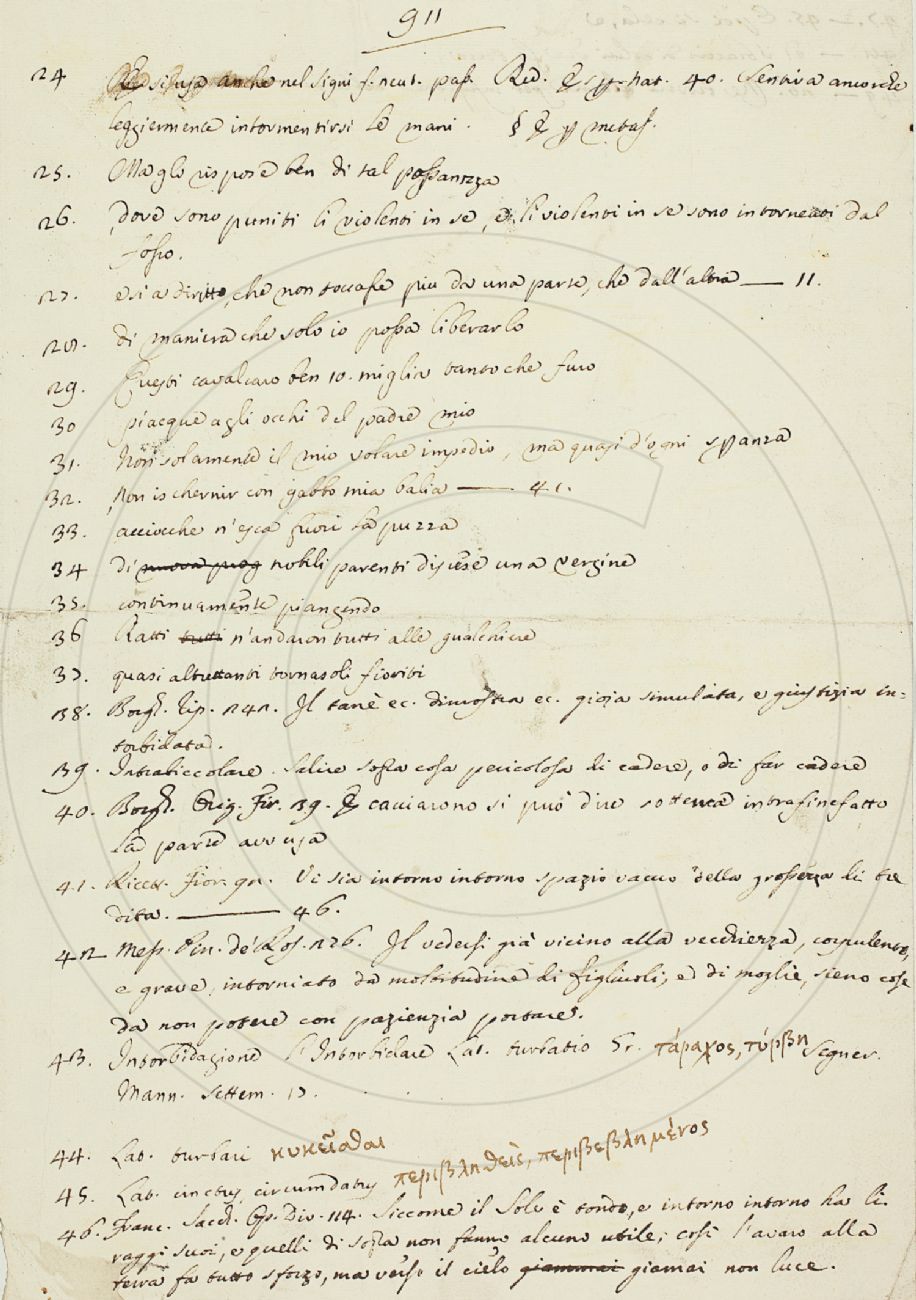 911
24 si usa anche nel signi f. neut. pass. Red. nat. 40. Sentiva ancorchè
leggiermente intormentirsi le mani. § metaf.
25. Ma gli rispose ben di tal possanzza
26. dove sono puniti li violenti in se, e li violenti in se sono intorneati dal
fosso.
27. e si a diritto, che non toccasse più da una parte, che dall'altra — 11.
28. di maniera che solo io possa liberarlo
29. Questi cavalcaro ben 10. miglia tanto che furo
30 piacque agli occhi del padre mio
31. Non solamente il mio volare impedio, ma quasi d'ogni spanza
32. Non ischernir con gabbo mia balia — 41.
33. acciocche n'esca fuori la puzza
34 di nobili parenti discese una vergine
35. continuamente piangendo
36 Ratti tutti n'andaron tutti alle gualchiere
37. quasi altrettanti tornasoli fioriti
38. Borgh. Rip. 242. Il tanè ec. dimostra ec. gioja simulata, e giustizia in=
torbidata.
39. Intrabiccolare. Salire sopra cosa pericolosa di cadere, o di far cadere
40. Borgh. Orig. Fir. 39. E cacciarono si può dire sotterra intrafinefatto
la parte avversa
41. Ricett. Fior. 92. Vi sia intorno intorno spazio vacuo della grossezza di tre
dita. — 46.
42 Mess. Cin. de' Ros. 226. Il vedersi già vicino alla vecchiezza, corpulento,
e grave, intorniato da moltitudine di figliuoli, e di moglie, sieno cose
da non potere con pazienzia portare.
43. Intorbidazione L'Intorbidare Lat. turbatio Gr. τάραχος, τύρβη Segner.
Mann. Settem. 17.
44. Lat. turbari κυκεῖσθαι
45. Lat. cinctus, circumdatus περιβληθεὶς, περιβεβλημένος
46. Franc. Sacch. Op. Div. 114. Siccome il Sole è tondo, e intorno intorno ha li
raggi suoi, e quelli di sopra non fanno alcuno utile; così l'avaro alla
terra fa tutto sforzo, ma verso il cielo giammai giamai non luce.